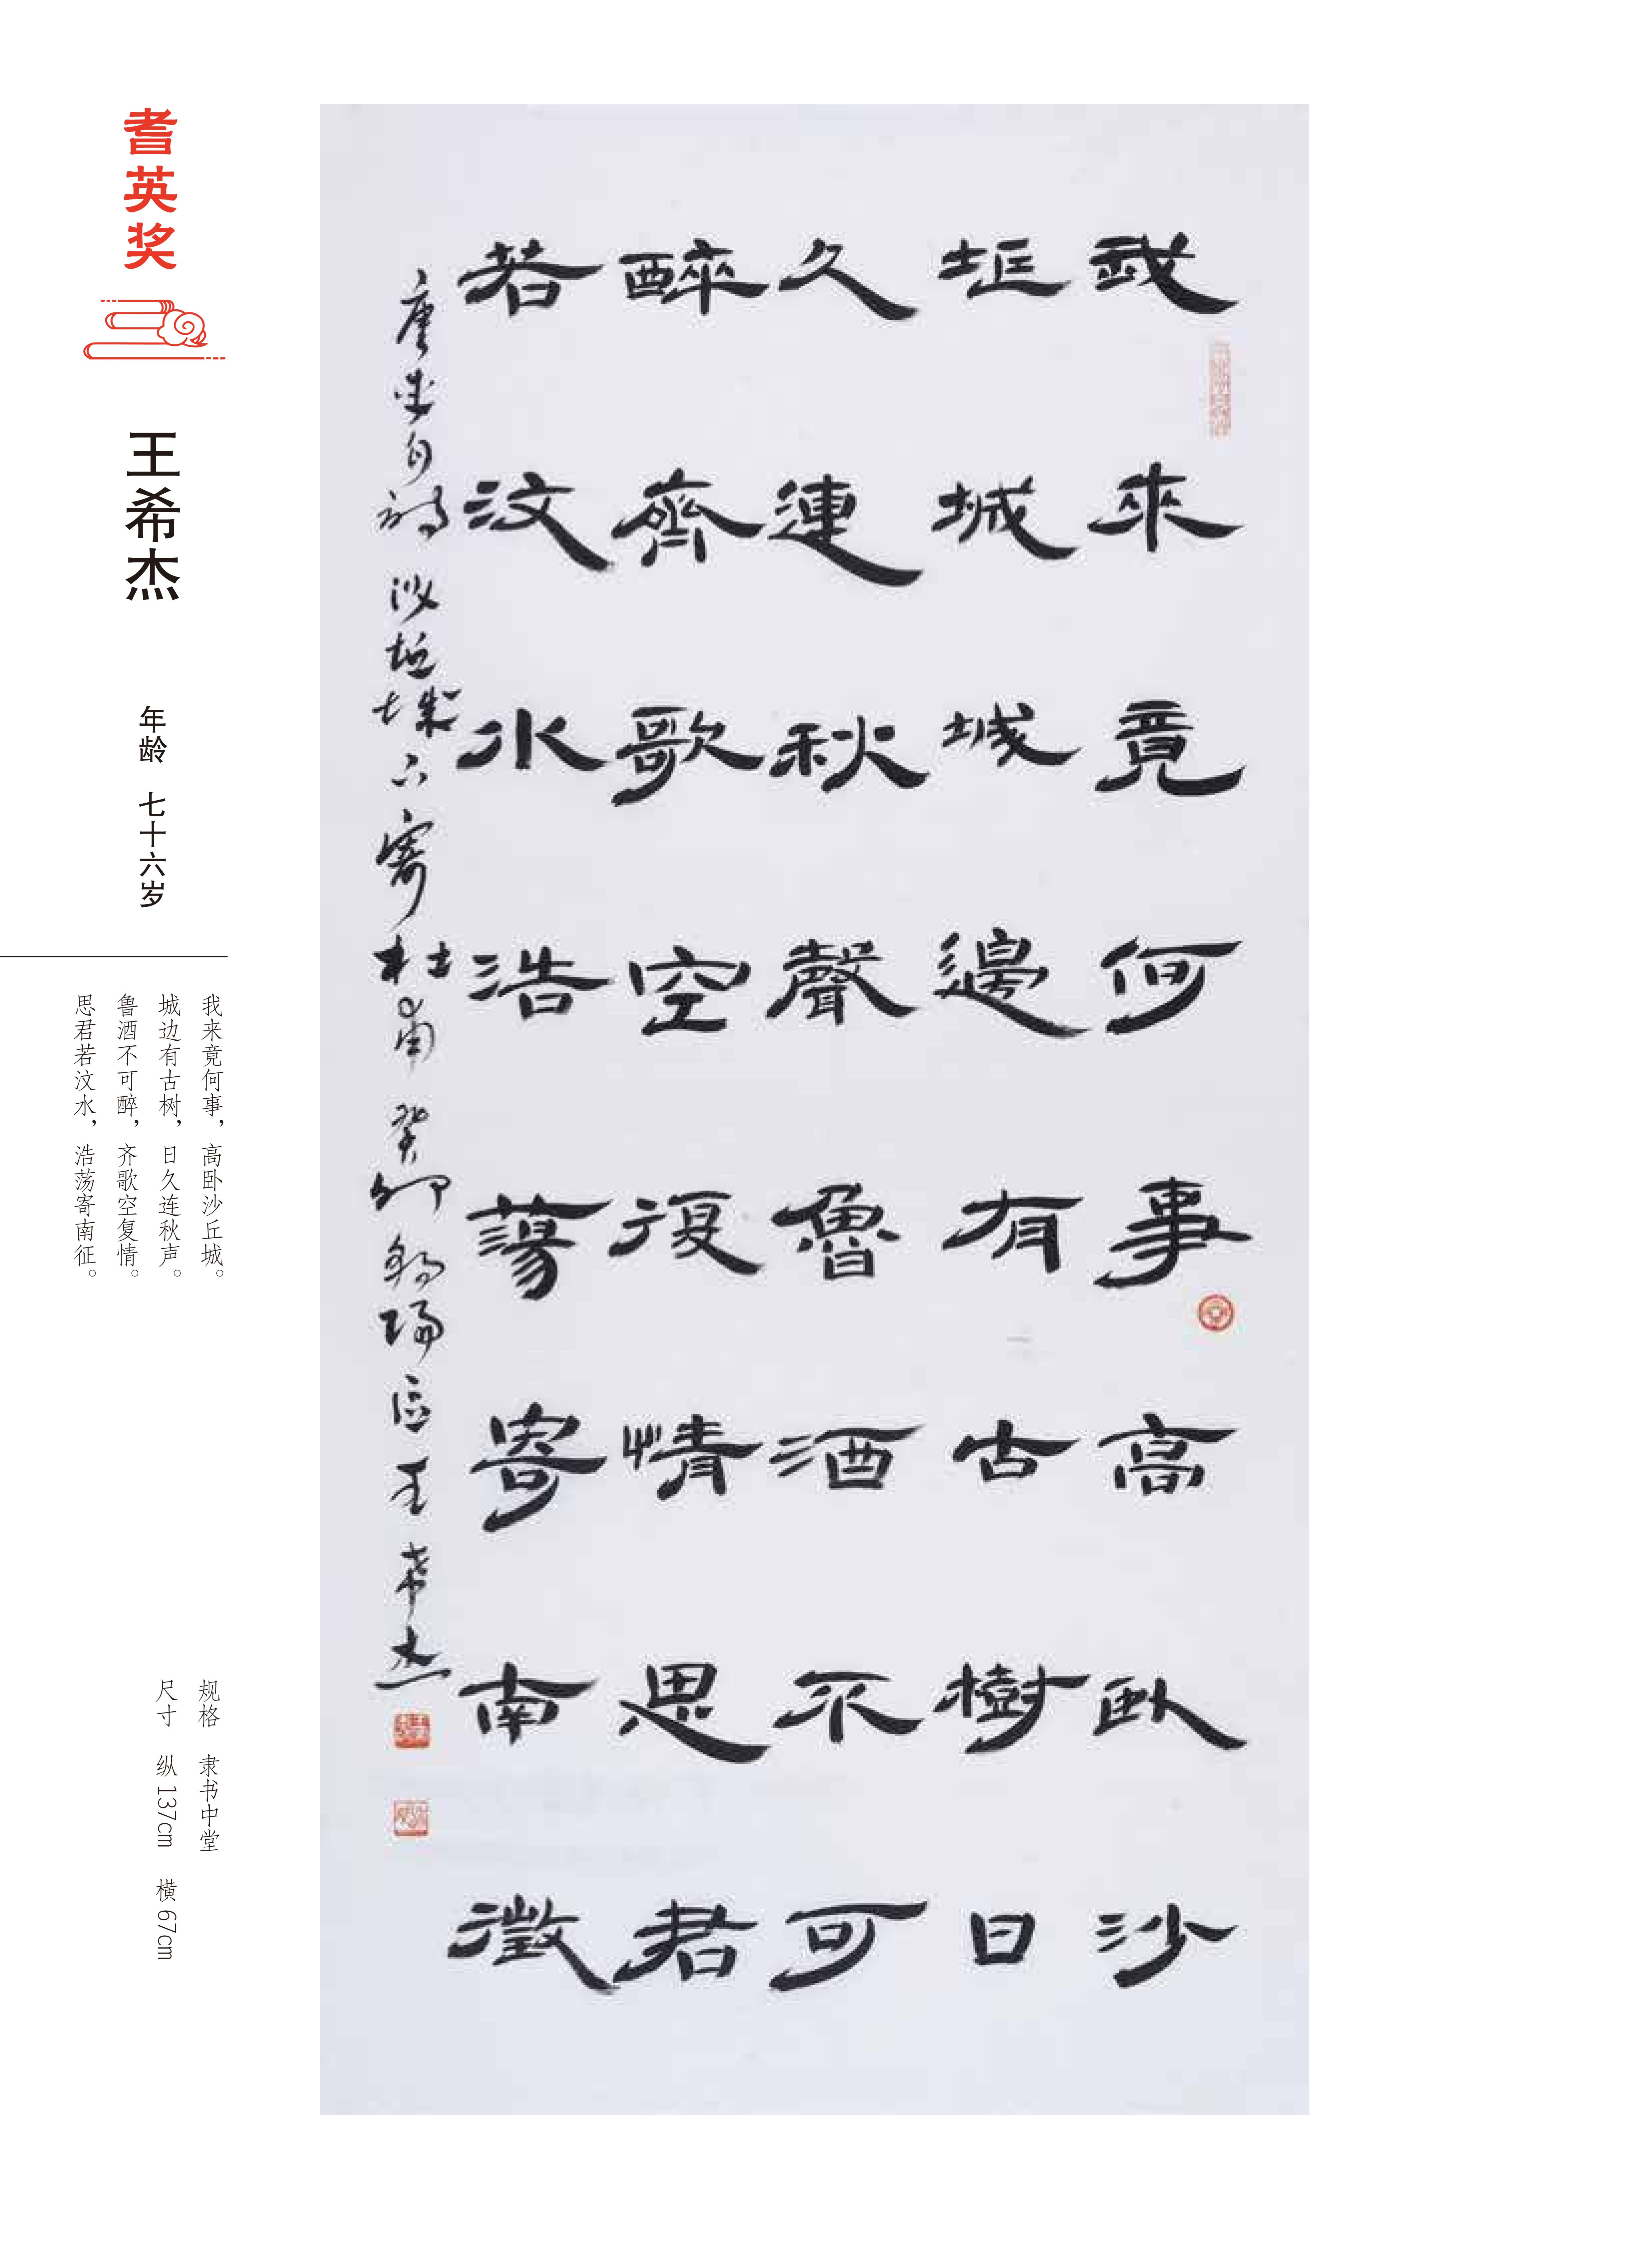 耆英奖
王希杰
年龄 七十六岁
我来竟何事，高卧沙丘城。
城边有古树，日久连秋声。
鲁酒不可醉，齐歌空复情。
思君若汶水，浩荡寄南征。
规格 隶书中堂
尺寸 纵137cm 横67cm
我來竟何事高臥沙
坵城城邊有古樹日
久連秋聲魯酒不可
醉齊歌空復情思君
若汶水浩蕩寄南徵
唐李白詩沙坵城下寄杜甫 癸卯朝陽區王希杰